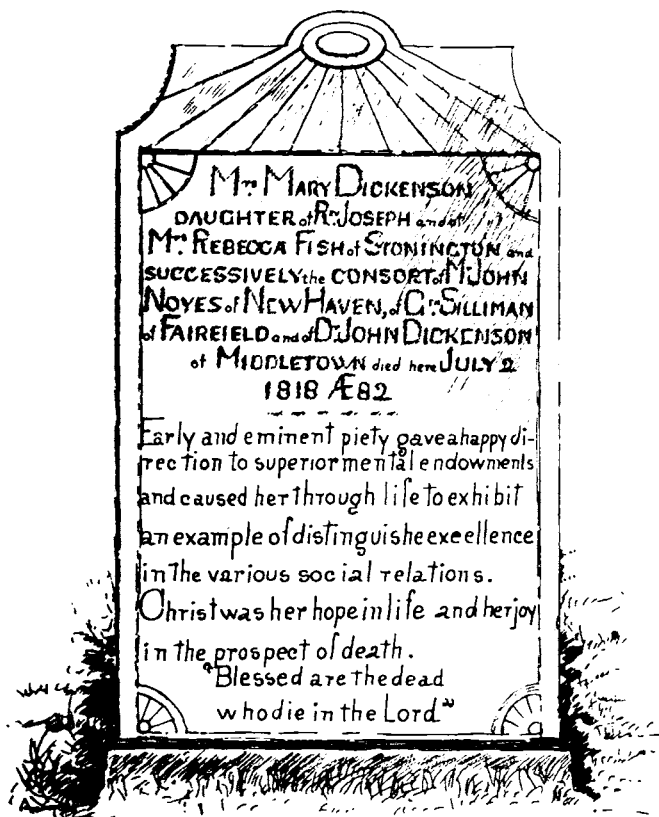 Mrs MARY DICKENSON
DAUGHTER of Rev JOSEPH and of
Mrs REBECCA FISH of STONINGTON and
SUCCESSIVELY the CONSORT of Mr JOHN
NOYES of NEW HAVEN, of Gen SILLIMAN
of FAIREIELD and of Dr JOHN DICKENSON
of MIDDLETOWN died here JULY 2
1818 Æ 82
Early and eminent piety gave a happy di-
rection to superior mental endowments
and caused her through life to exhibit
an example of distinguishe excellence
in the various social relations.
Christ was her hope in life and her joy
in the prospect of death.
"Blessed are the dead
who die in the Lord"